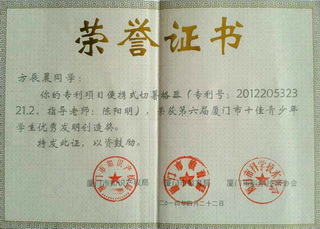 荣誉证书
方辰晨同学:
你的专利项目便携式切薯格器(专利号:2012205323
21.2,指导老师:陈阳明),荣获第六届厦门市十佳青少年
学生优秀发明创造奖。
特发此证,以资鼓励。
厦门市知识产权局 厦门市教育局 厦门市科学技术协会
二〇一四年四月二十二日